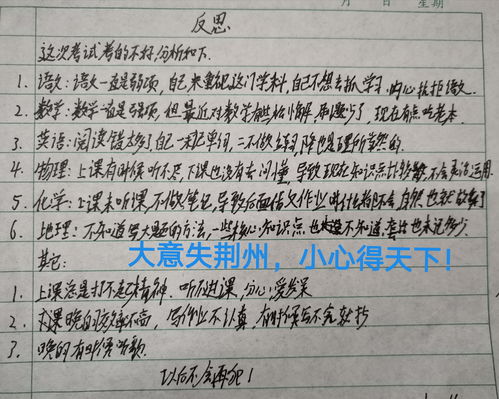 月 日 星期
反思
这次考试考的不好,分析如下.
1. 语文:语文一直是弱项,自己来重视这门学科,自己不想去抓学习,内心抗拒语文
2. 数学:数学一直是强项,但最近对数学有些松懈,刷题少了,现在有点吃老本
3. 英语:阅读错太多了,自己一来记单词,二不做练习,降也是理所当然的.
4. 物理:上课有时候听不尽,下课也没有去问懂,导致现在知识点比较多,不会灵活运用.
5. 化学:上课未听课,不做笔记,导致后面作业
6. 地理:不知道写大题的方法,一些核心知识点也不知道,也未记多少.
大意失荆州，小心得天下！
其它:
1. 上课总是打不起精神,听不进课,分心,爱发呆
2. 晚的效率不高,写作业不认真,有时候写不完就抄.
3. 晚的有时候听歌.
以后不会再犯!